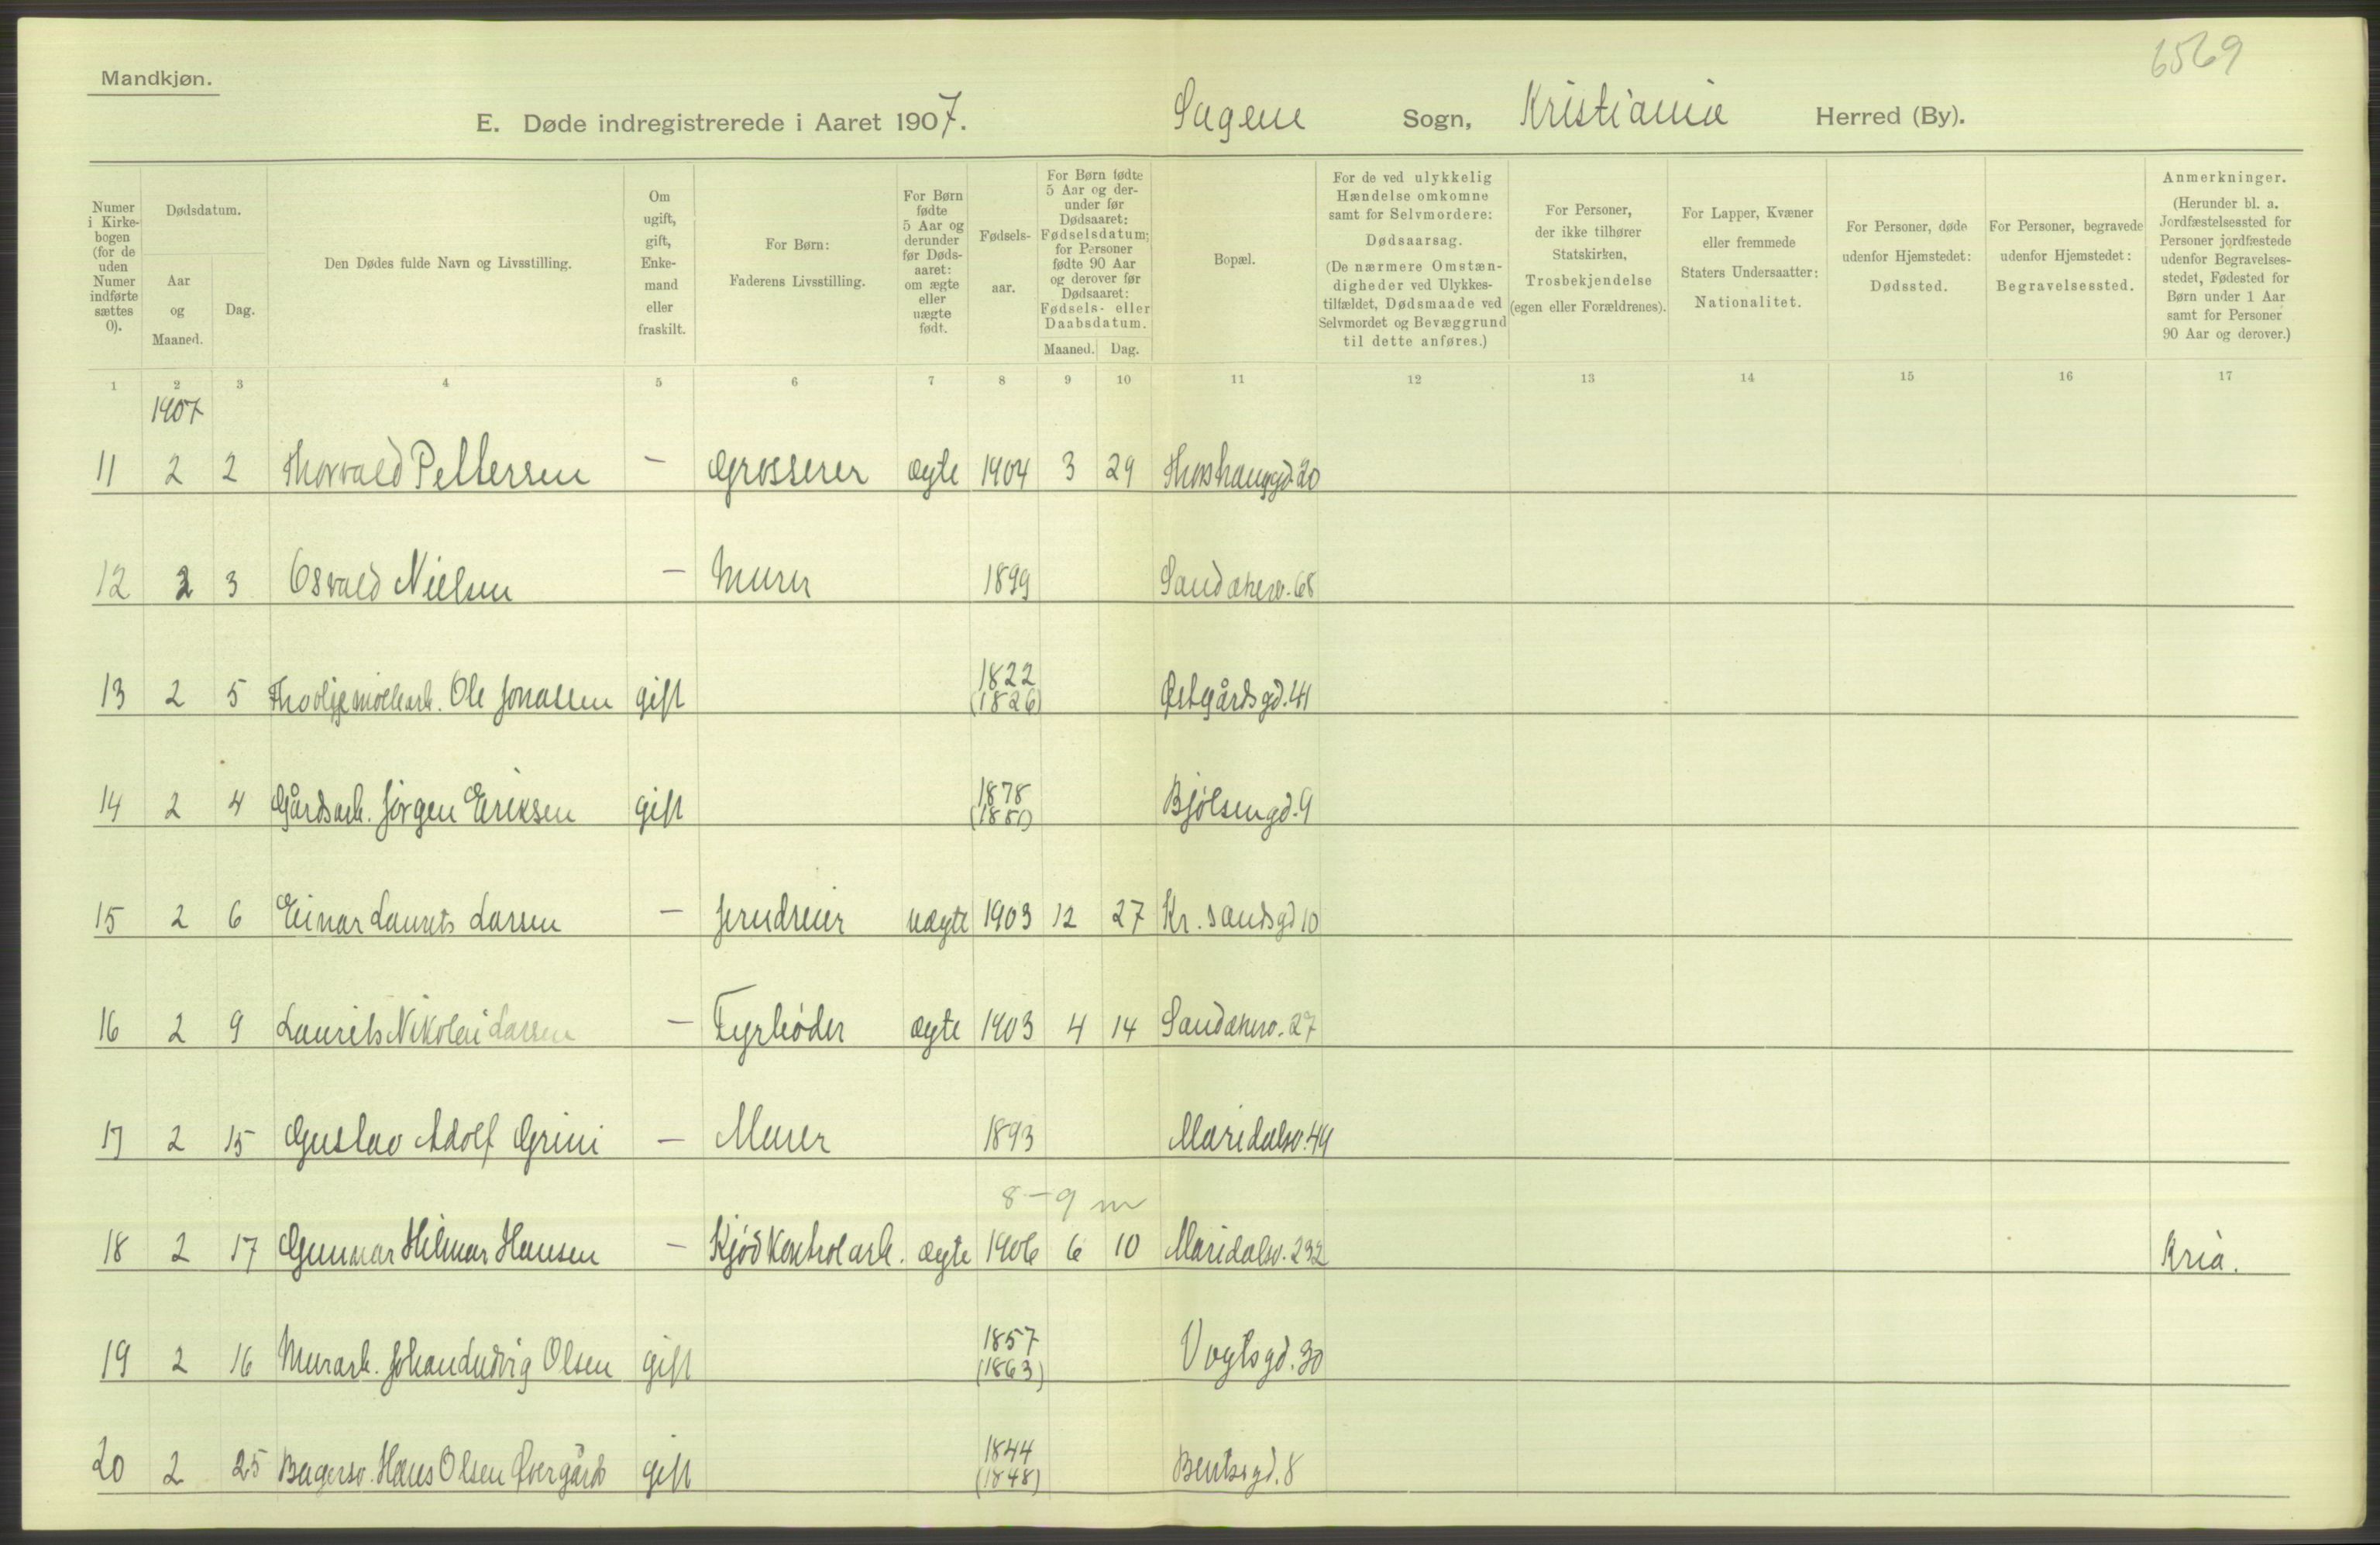 6569
Mandkjøn.
E. Døde indregistrerede i Aaret 1907. Sagene Sogn, Kristiania Herred (By).
Numer i Kirkebogen (for de uden Numer indførte sættes 0).
Dødsdatum.
Aar og Maaned.
Dag.
Den Dødes fulde Navn og Livsstilling.
Om ugift, gift, Enkemand eller fraskilt.
For Børn:
Faderens Livsstilling.
For Børn fødte 5 Aar og derunder før Dødsaaret: om ægte eller uægte født.
Fødselsaar.
For Børn fødte 5 Aar og derunder før Dødsaaret: Fødselsdatum; for Personer fødte 90 Aar og derover før Dødsaaret: Fødsels- eller Daabsdatum.
Maaned. Dag.
Bopæl.
For de ved ulykkelig Hændelse omkomne samt for Selvmordere: Dødsaarsag. (De nærmere Omstændigheder ved Ulykkestilfældet, Dødsmaade ved Selvmordet og Bevæggrund til dette anføres.)
For Personer, der ikke tilhører Statskirken, Trosbekjendelse (egen eller Forældrenes).
For Lapper, Kvæner eller fremmede Staters Undersaatter: Nationalitet.
For Personer, døde udenfor Hjemstedet: Dødssted.
For Personer, begravede udenfor Hjemstedet: Begravelsessted.
Anmerkninger. (Herunder bl. a. Jordfæstelsessted for Personer jordfæstede udenfor Begravelsesstedet, Fødested for Børn under 1 Aar samt for Personer 90 Aar og derover.)
1 2 3 4 5 6 7 8 9 10 11 12 13 14 15 16 17
1907
11 2 2 Thorvald Pettersen - Grosserer ægte 1904 3 29 20
12 2 3 Osvald Nielsen - Murer 1899 Sandakerv. 68
13 2 5 Ole Jonassen gift 1822 (1826) Østgårdsgd. 41
14 2 4 Gårdsarb. Jørgen Eriksen gift 1878 (1880) Bjølsengd. 9
15 2 6 Einar Laurits Larsen - Jerndreier uægte 1903 12 27 Kr.sandsgd 10
16 2 9 Laurits Nikolai Larsen - Fyrbøder ægte 1903 4 14 Sandakerv. 27
17 2 15 Gustav Adolf Grini - Murer 1893 Maridalsv. 49
8-9 m
18 2 17 Gunnar Hilmar Hansen - Kjødkontrolarb. ægte 1906 6 10 Maridalsv. 232 Kria.
19 2 16 Murarb. Johan Ludvig Olsen gift 1857 (1863) Vogtsgd. 30
20 2 25 Bagersv. Hans Olsen Øvergård gift 1844 (1848) Bentsegd. 8